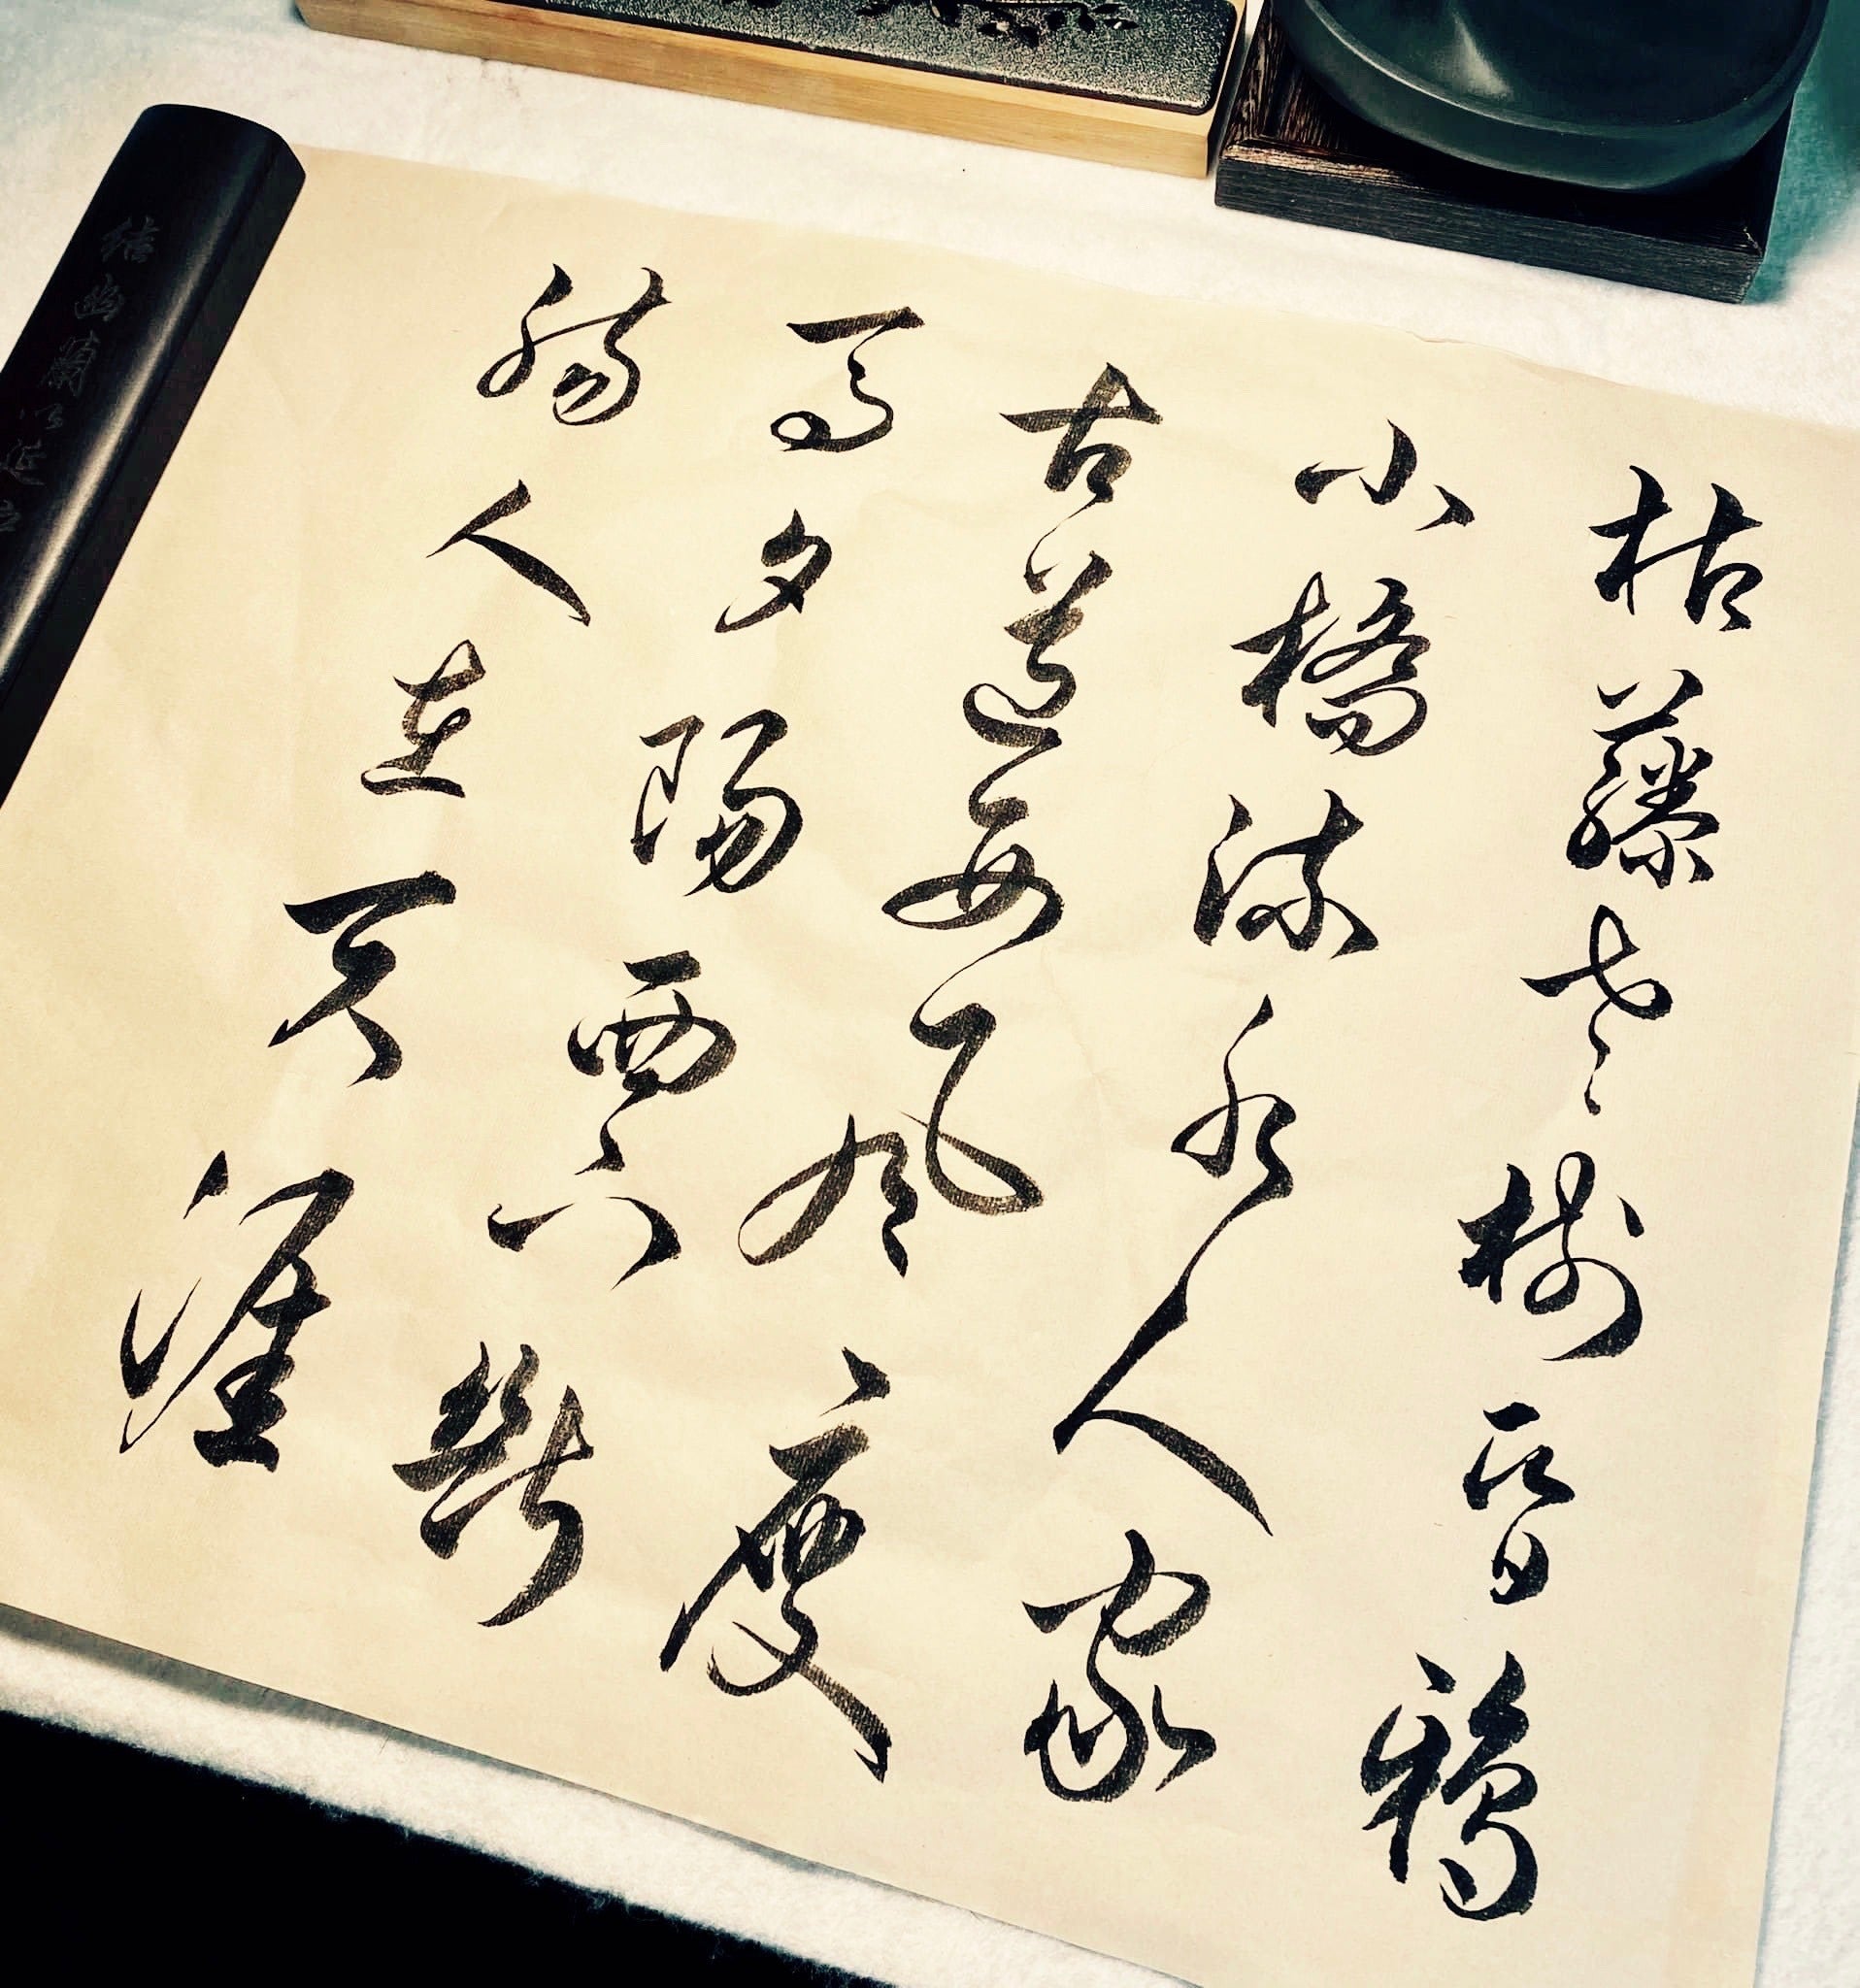 枯藤老樹昏鴉
小橋流水人家
古道西風瘦
馬夕陽西下斷
腸人在天涯